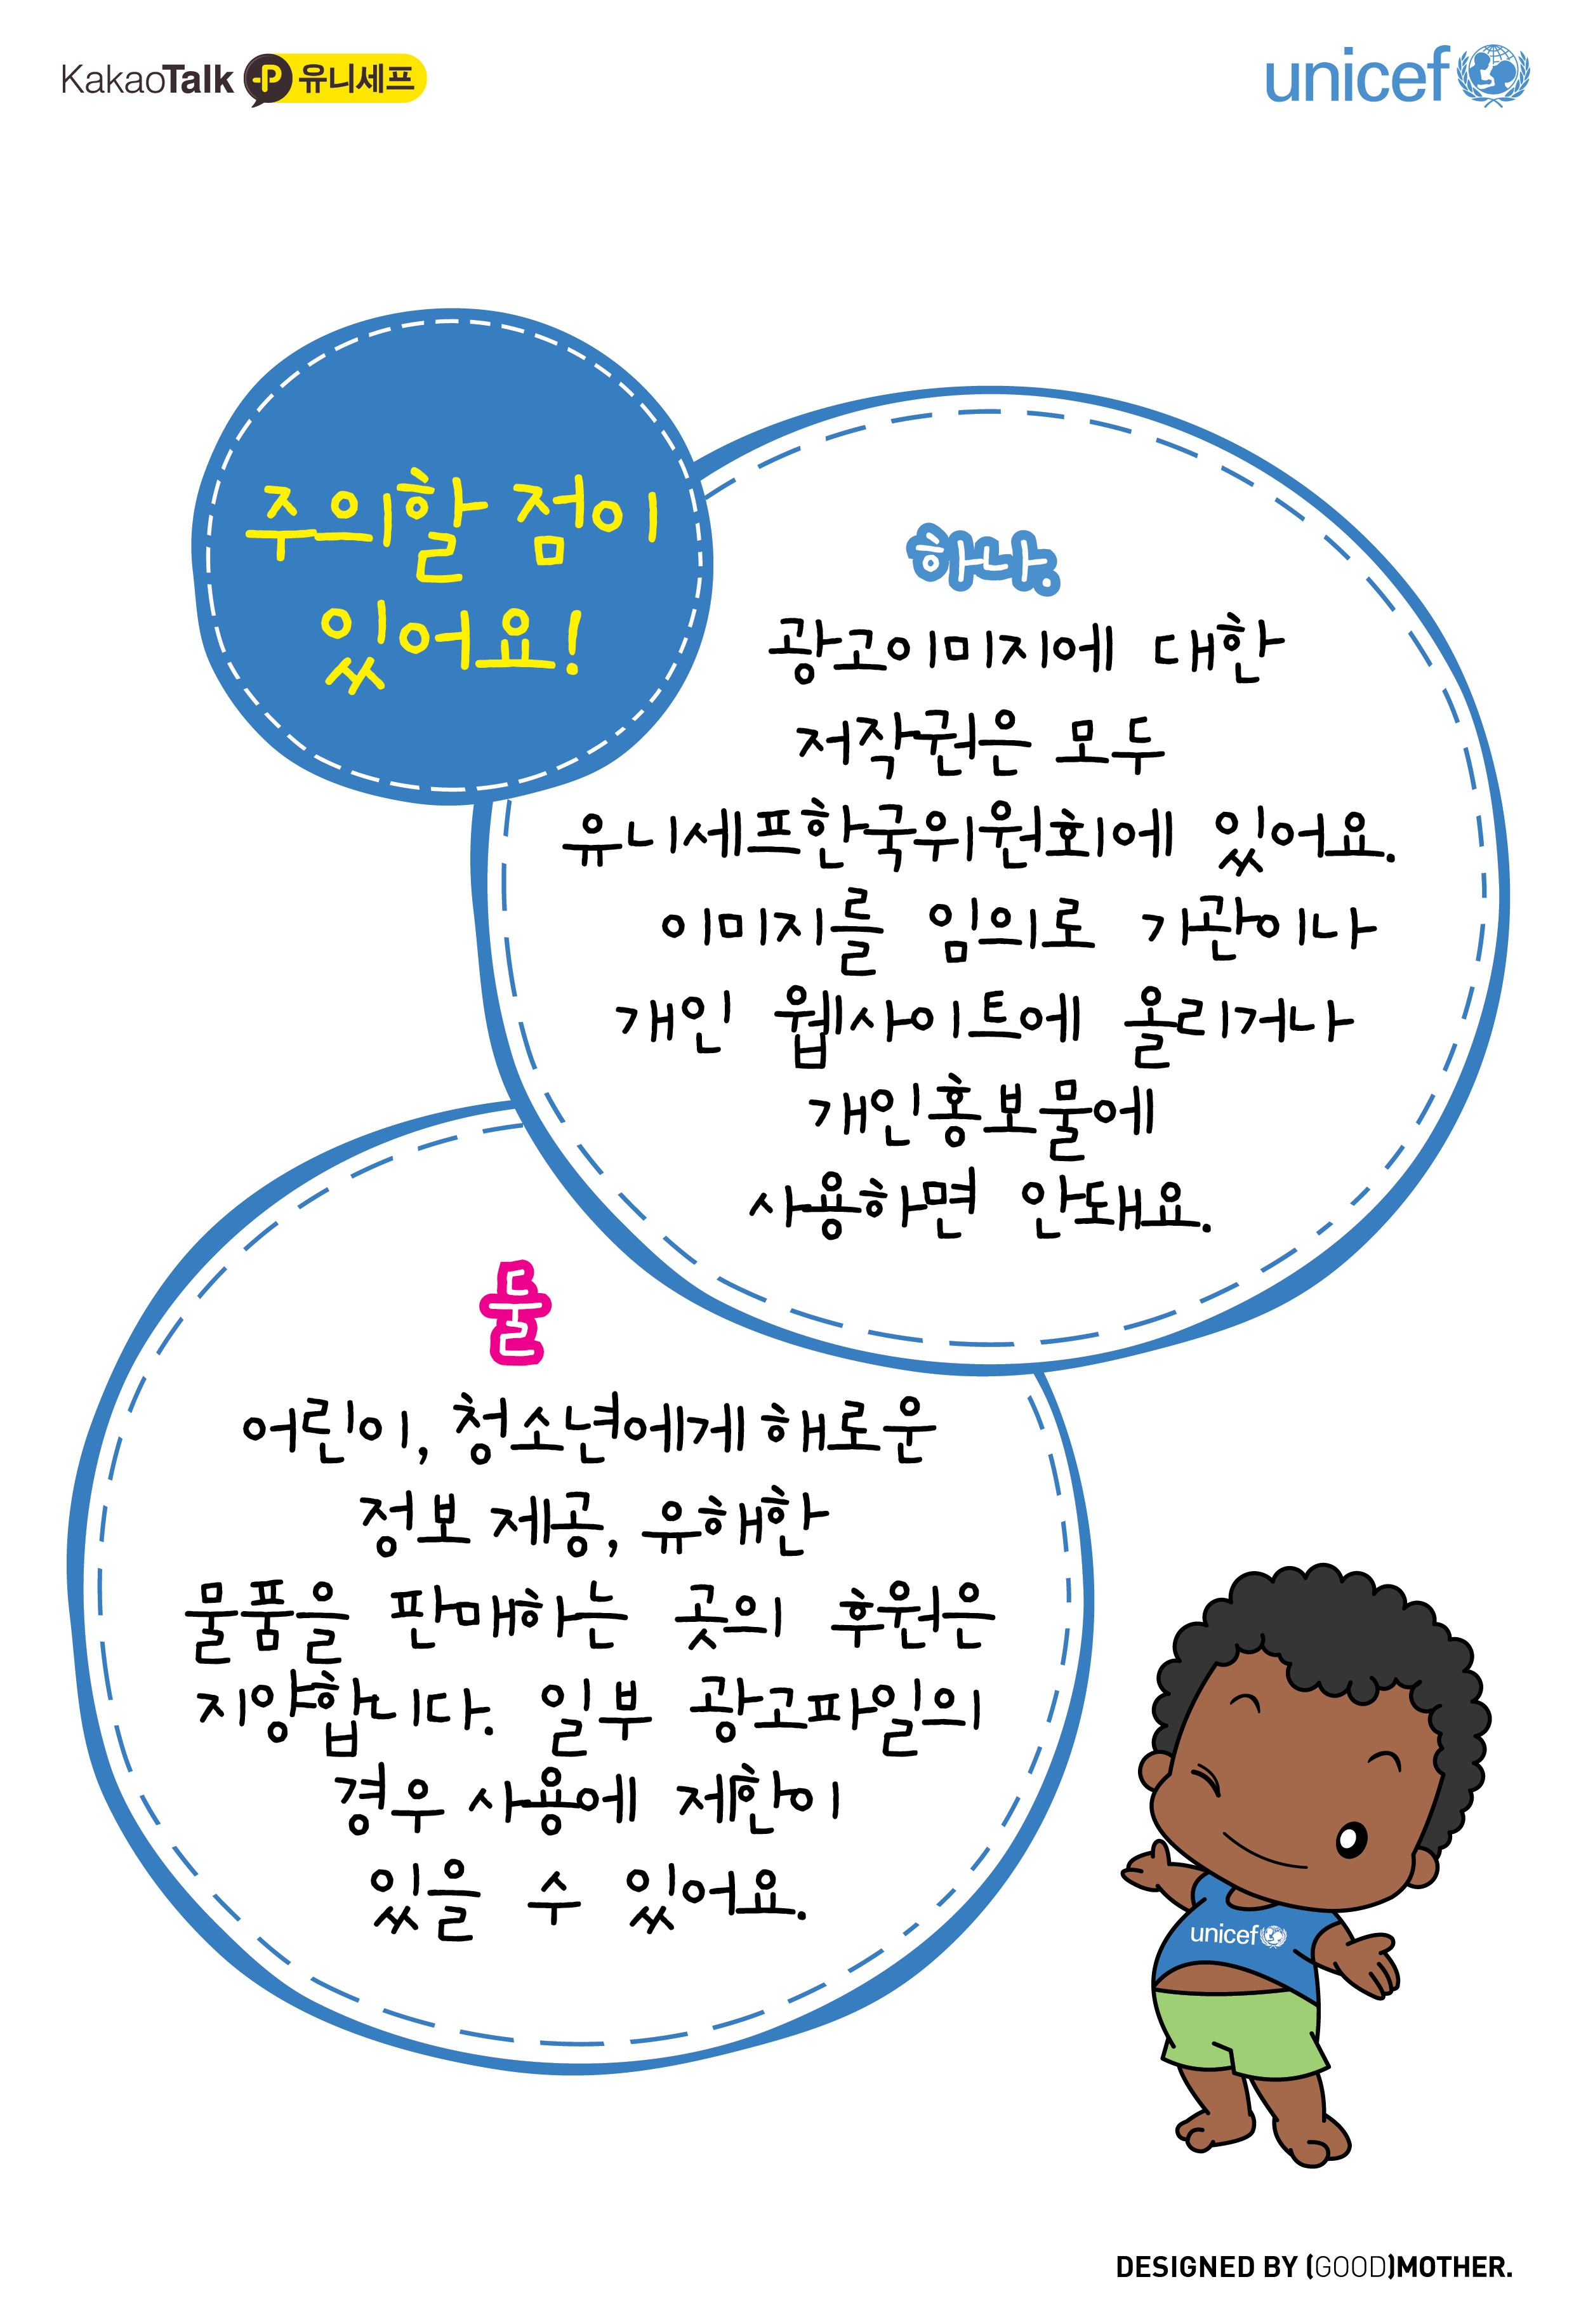 KakaoTalk P 유니세프
unicef
주의할 점이
있어요!
하나.
광고이미지에 대한
저작권은 모두
유니세프한국위원회에 있어요.
이미지를 임의로 기관이나
개인 웹사이트에 올리거나
개인홍보물에
사용하면 안돼요.
둘
어린이, 청소년에게 해로운
정보 제공, 유해한
물품을 판매하는 곳의 후원은
지양합니다. 일부 광고파일의
경우 사용에 제한이
있을 수 있어요.
unicef
DESIGNED BY (GOOD)MOTHER.